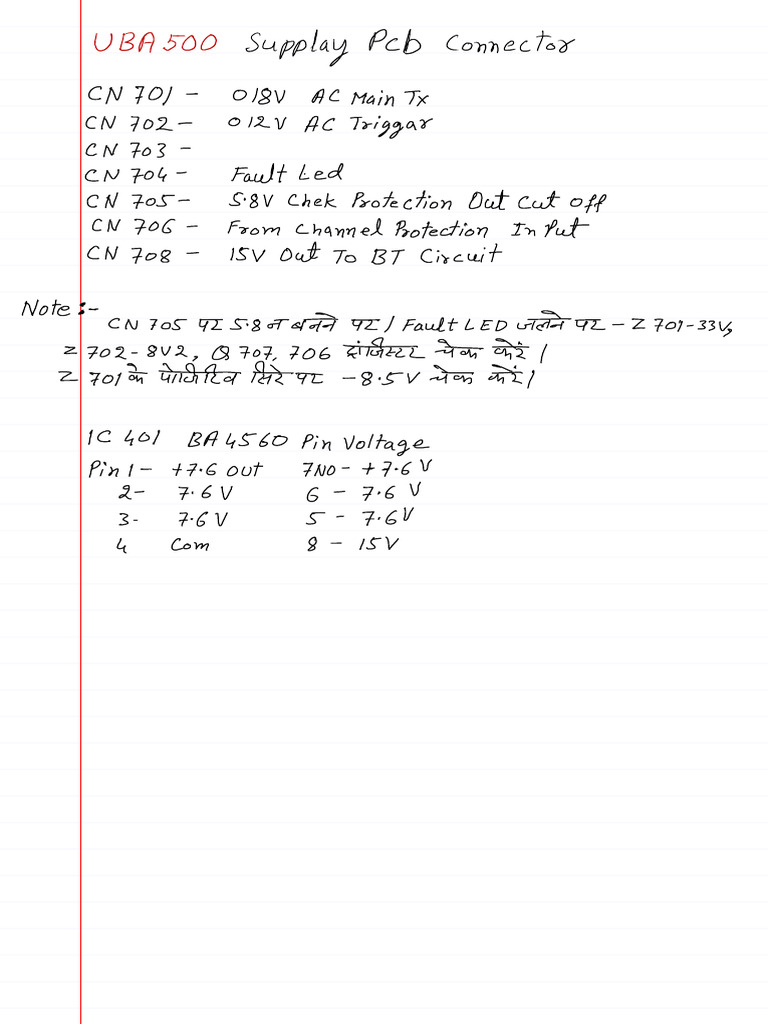 UBA500 Supplay Pcb Connector
CN 701 - 018V AC Main Tx
CN 702 - 012V AC Triggar
CN 703 -
CN 704 - Fault Led
CN 705 - 5.8V Chek Protection Out Cut off
CN 706 - From Channel Protection In Put
CN 708 - 15V Out To BT Circuit
Note:-
CN 705 पर 5.8 न बनने पर / Fault LED जलने पर - Z 701-33V,
Z 702-8V2, Q 707, 706 ट्रांजिस्टर चेक करें।
Z 701 के पोजिटिव सिरे पर -8.5V चेक करें।
IC 401 BA4560 Pin Voltage
Pin 1 - +7.6 out 7NO - +7.6 V
2 - 7.6 V 6 - 7.6 V
3 - 7.6 V 5 - 7.6 V
4 Com 8 - 15V